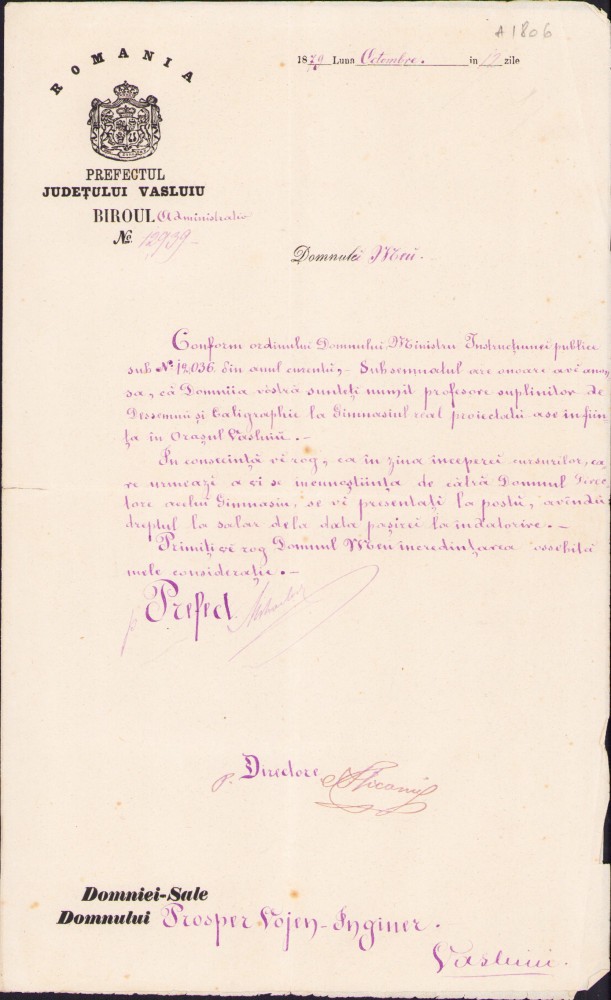 A1806
1879 Luna Octombre. in 12 zile
ROMANIA
PREFECTUL
JUDEȚULUI VASLUIU
BIROUL Administrativ
No. 12,939
Domnule Meu.
Conform ordinului Domnului Ministru Instrucțiunei publice
sub No. 12,036. din anul curentŭ,- Subsemnatul are onoare a vĕ anun
ța, că Domniia vóstră sunteți numit profesore suplinitor de
Dessemnŭ și Caligraphie la Gimnasiul real proiectatŭ a se infiin
ța in Orașul Vasluiŭ. -
In consecință vĕ rog, ca in ziua începerei cursurilor, ca
re urmează a vi se incunoștiința de cătră Domnul Direc
tore acelui Gimnasiu, se vĕ presentați la postŭ, avîndŭ
dreptul la salar de la data pașirei la indatorire. -
Primiți vĕ rog Domnul Meu incredințarea ossebitei
mele considerație. -
p Prefect
p. Directore
Domniei-Sale
Domnului Prosper Vojen-Inginer.
Vasluiu.